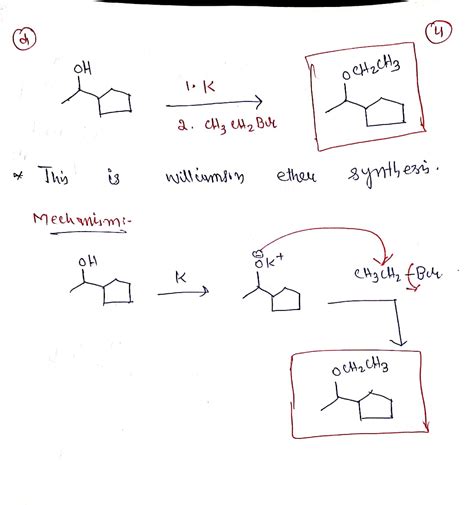 d 4
OH OCH₂CH₃
1. K
2. CH₃CH₂Br
* This is williamson ether synthesis.
Mechanism:-
OH K ⊖OK⁺ CH₃CH₂-Br
OCH₂CH₃